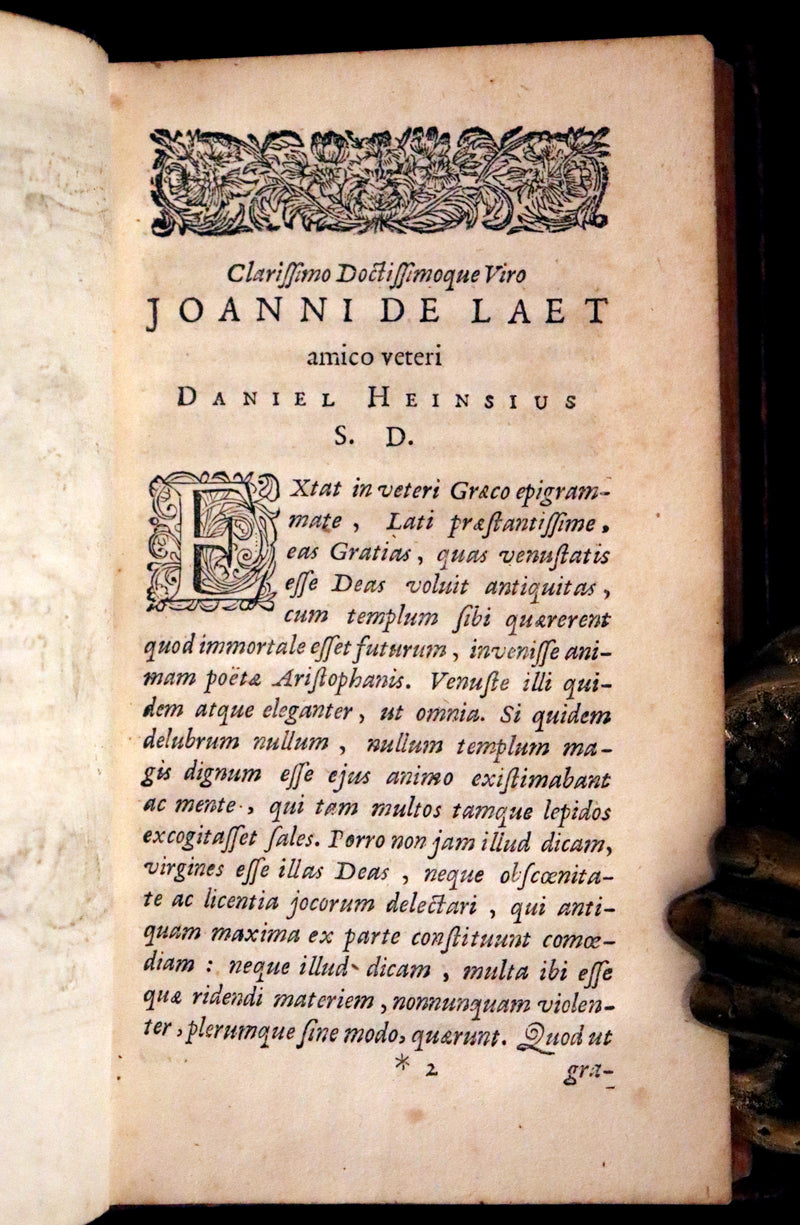 Clariſſimo Doctiſſimoque Viro
JOANNI DE LAET
amico veteri
DANIEL HEINSIUS
S. D.
EXtat in veteri Græco epigram-
mate , Lati præſtantiſſime ,
eas Gratias , quas venuſtatis
eſſe Deas voluit antiquitas ,
cum templum ſibi quærerent
quod immortale eſſet futurum , inveniſſe ani-
mam poëtæ Ariſtophanis. Venuſte illi qui-
dem atque eleganter , ut omnia. Si quidem
delubrum nullum , nullum templum ma-
gis dignum eſſe ejus animo exiſtimabant
ac mente , qui tam multos tamque lepidos
excogitaſſet ſales. Porro non jam illud dicam,
virgines eſſe illas Deas , neque obſcœnita-
te ac licentia jocorum delectari , qui anti-
quam maxima ex parte conſtituunt comœ-
diam : neque illud dicam , multa ibi eſſe
quæ ridendi materiem , nonnunquam violen-
ter , plerumque ſine modo, quærunt. Quod ut
* 2 gra-